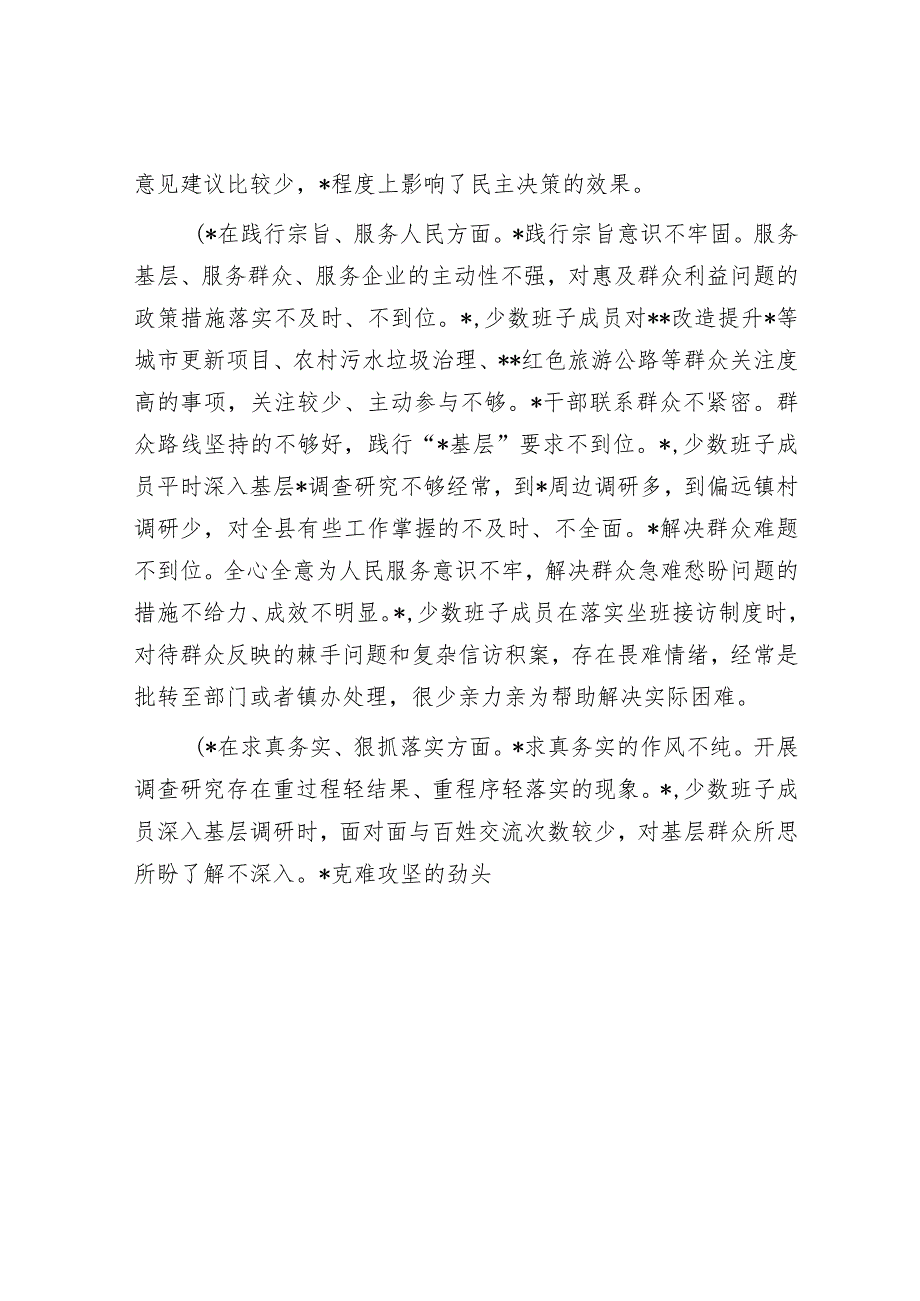 意见建议比较少，*程度上影响了民主决策的效果。
(*在践行宗旨、服务人民方面。*践行宗旨意识不牢固。服务
基层、服务群众、服务企业的主动性不强，对惠及群众利益问题的
政策措施落实不及时、不到位。*,少数班子成员对**改造提升*等
城市更新项目、农村污水垃圾治理、**红色旅游公路等群众关注度
高的事项，关注较少、主动参与不够。*干部联系群众不紧密。群
众路线坚持的不够好，践行“*基层”要求不到位。*,少数班子成
员平时深入基层*调查研究不够经常，到*周边调研多，到偏远镇村
调研少，对全县有些工作掌握的不及时、不全面。*解决群众难题
不到位。全心全意为人民服务意识不牢，解决群众急难愁盼问题的
措施不给力、成效不明显。*,少数班子成员在落实坐班接访制度时，
对待群众反映的棘手问题和复杂信访积案，存在畏难情绪，经常是
批转至部门或者镇办处理，很少亲力亲为帮助解决实际困难。
(*在求真务实、狠抓落实方面。*求真务实的作风不纯。开展
调查研究存在重过程轻结果、重程序轻落实的现象。*,少数班子成
员深入基层调研时，面对面与百姓交流次数较少，对基层群众所思
所盼了解不深入。*克难攻坚的劲头